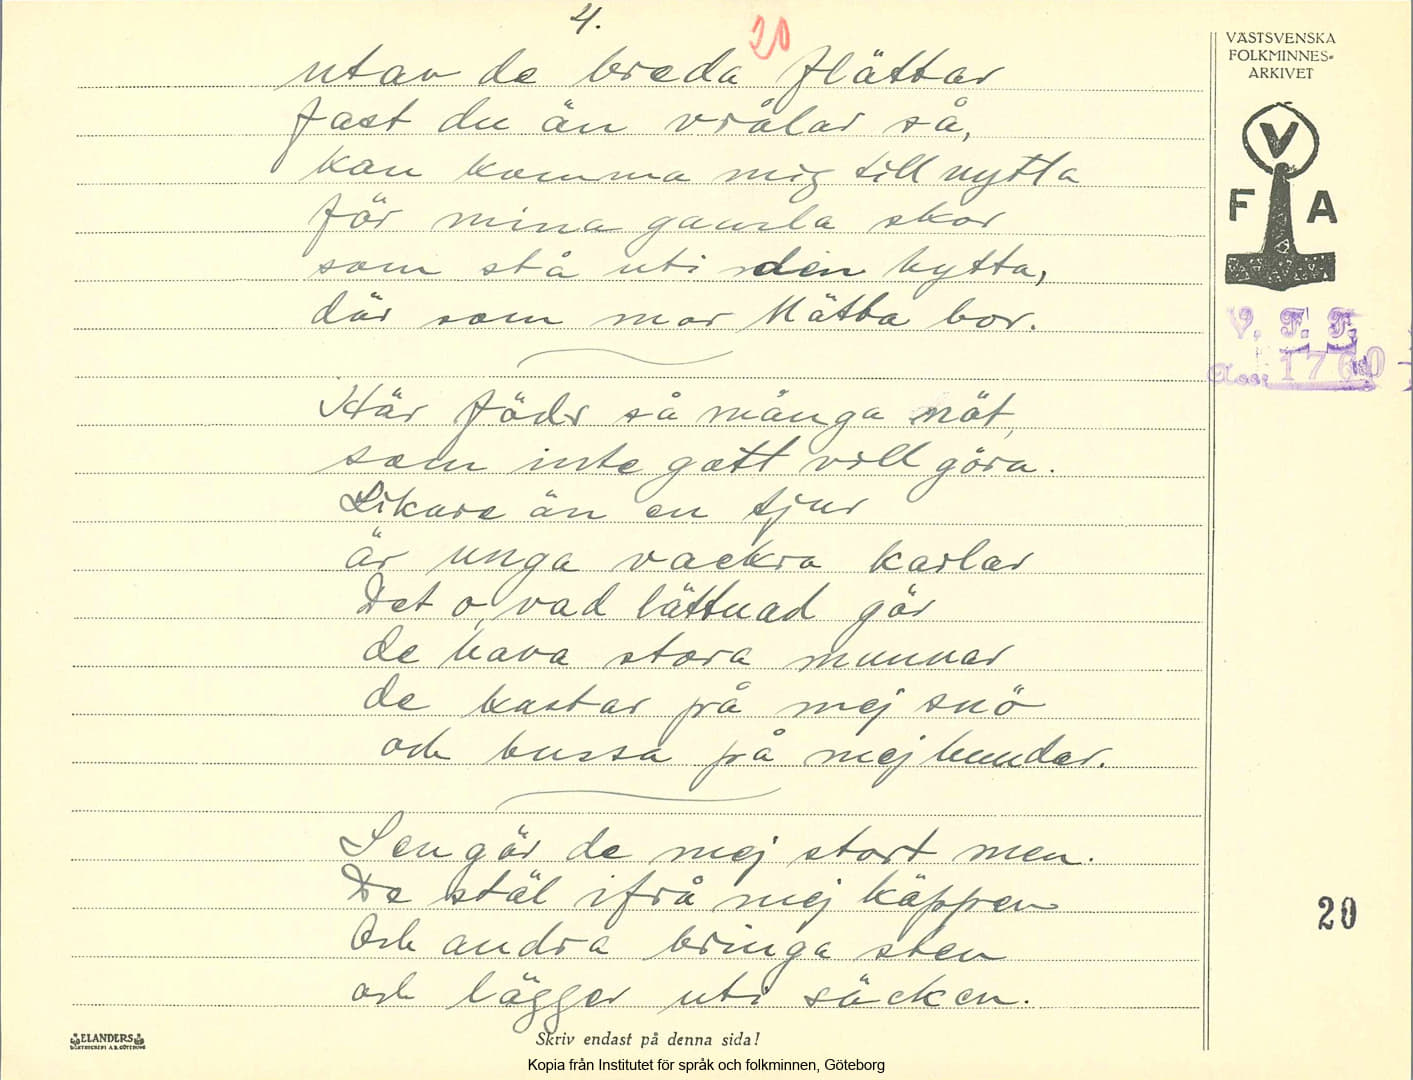 4.
20
VÄSTSVENSKA
FOLKMINNES-
ARKIVET
utav de breda flättar
fast du än vrålar så,
kan komma mig till nytta
för mina gamla skor
som stå uti den hytta,
där som mor Mätta bor.
V
F A
V. F. F.
Acc. 1760
Här föds så många nöt,
som inte gott vill göra.
Likare än en tjur
är unga vackra karlar
Det o, vad lättnad gör
de hava stora munnar
de kastar på mej snö
och bussa på mej hundar.
Sen gör de mej stort men.
De stäl ifrå mej käppen
Och andra bringa sten
och lägger uti säcken.
20
ELANDERS
BOKTRYCKERI A.B. GÖTEBORG
Skriv endast på denna sida!
Kopia från Institutet för språk och folkminnen, Göteborg